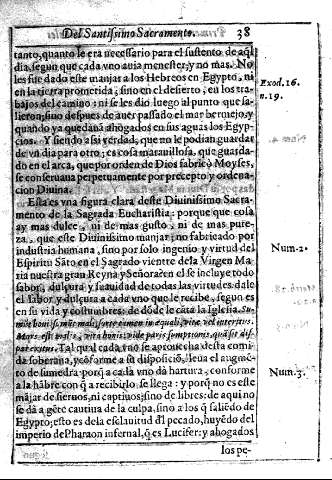 Del Santissimo Sacramento. 38
tanto, quanto le era necessario para el sustento de aq̃l
dia, segun que cada vno auia menester, y no mas. No
les fue dado este manjar a los Hebreos en Egypto, ni
en la tierra prometida, sino en el desierto, en los tra-
bajos del camino: ni se les dio luego al punto que sa-
lieron, sino despues de auer passado el mar bermejo, y
quando ya quedauã ahogados en sus aguas los Egyp-
cios. Y siendo assi verdad, que no le podian guardar
de vn dia para otro; es cosa marauillosa, que guarda-
do en el arca, que por orden de Dios fabricò Moyses,
se conseruaua perpetuamente por precepto y ordena-
cion Diuina.
Exod. 16.
n. 19.
Esta es vna figura clara deste Diuinissimo Sacra-
mento de la Sagrada Eucharistia: porque que cosa
ay mas dulce, ni de mas gusto, ni de mas pure-
za, que este Diuinissimo manjar, no fabricado por
industria humana, sino por solo ingenio y virtud del
Espiritu Sãto en el Sagrado vientre de la Virgen Ma-
ria nuestra gran Reyna y Señora? en el se incluye todo
sabor, dulçura y suauidad de todas las virtudes, dale
el sabor y dulçura a cada vno que le recibe, segun es
en su vida y costumbres: de dõde le cãta la Iglesia. Su-
Num. 2.
munt boni, sumunt mali, sorte tamen inæquali, vitæ vel interitus.
Mors est malis, vita bonis, vide paris sumptionis, quã sit dis-
par exitus. Tal qual cada vno se aprouecha desta comi-
da soberana, y cõforme a su disposiciõ, lleua el augmẽ-
to
porq̃ a cada vno dà hartura, conforme
a la hãbre con q̃ a recibirlo se llega: y porq̃ no es este
mãjar de sieruos, ni captiuos; sino de libres: de aqui no
se dà a gẽte cautiua de la culpa, sino a los q̃ saliẽdo de
Egypto; esto es de la esclauitud dl pecado, huyẽdo del
imperio de Pharaon infernal, q̃ es Lucifer: y ahogados
Num. 3.
los pe-